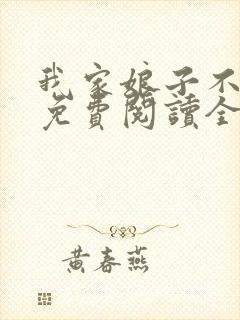 我家娘子不
免費閱讀全
黃春燕